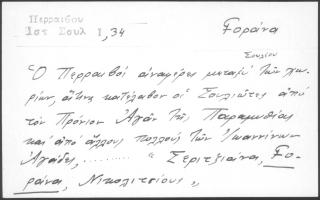 Περραιβου
Ιστ Σουλ Ι,34
Γοράνα
Σουλίου
"Ο Περραιβός αναφέρει μεταξύ των χω-
ρίων, άτινα κατέλαβον οι Σουλιώτες από
τον Πρόνιον Αγάν της Παραμυθίας
και από άλλους πολλούς των Ιωαννίνων
Αγάδες, ........ "Σεριτζιανα, Γο-
ράνα, Νικολίτσιους "